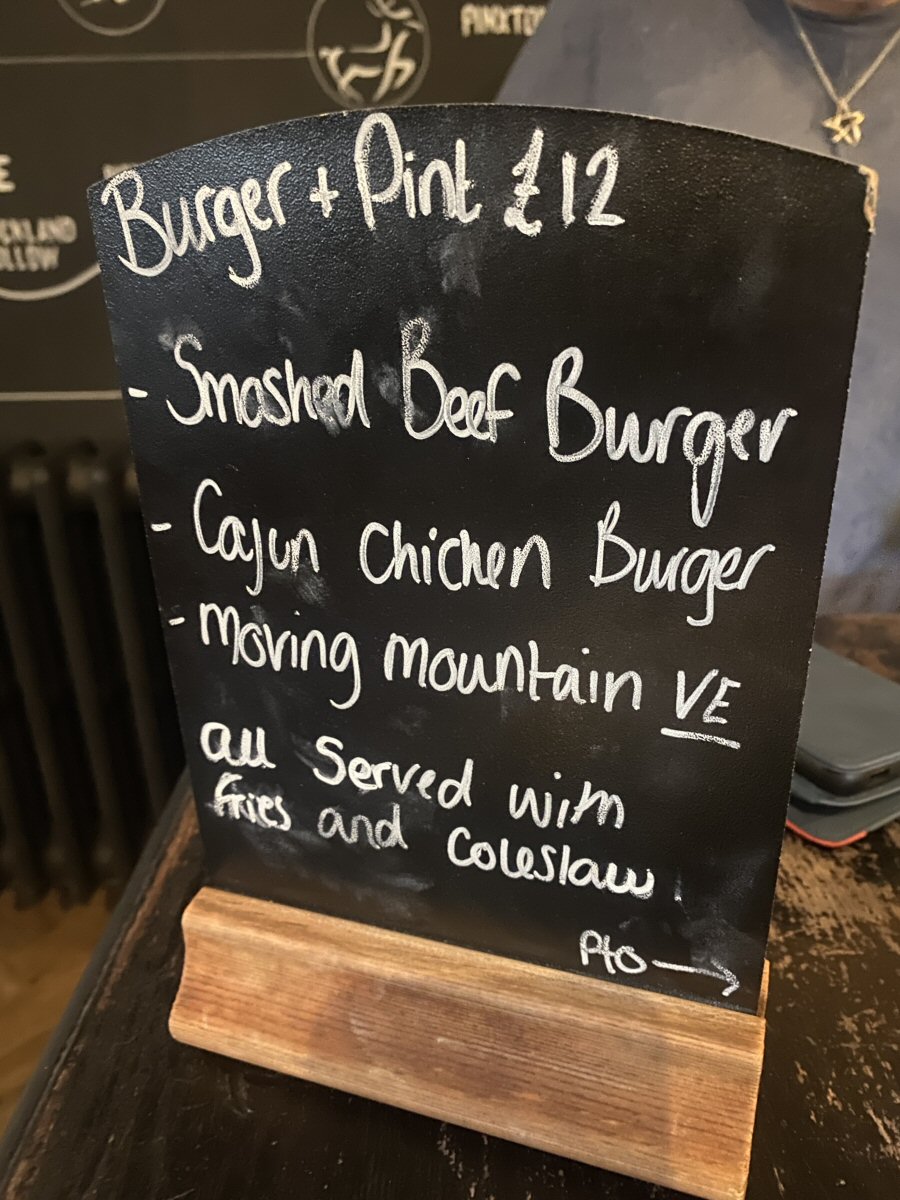 PINXTO
Burger + Pint £12
- Smashed Beef Burger
- Cajun Chicken Burger
- Moving mountain VE
all Served with
fries and Coleslaw.
Pto →